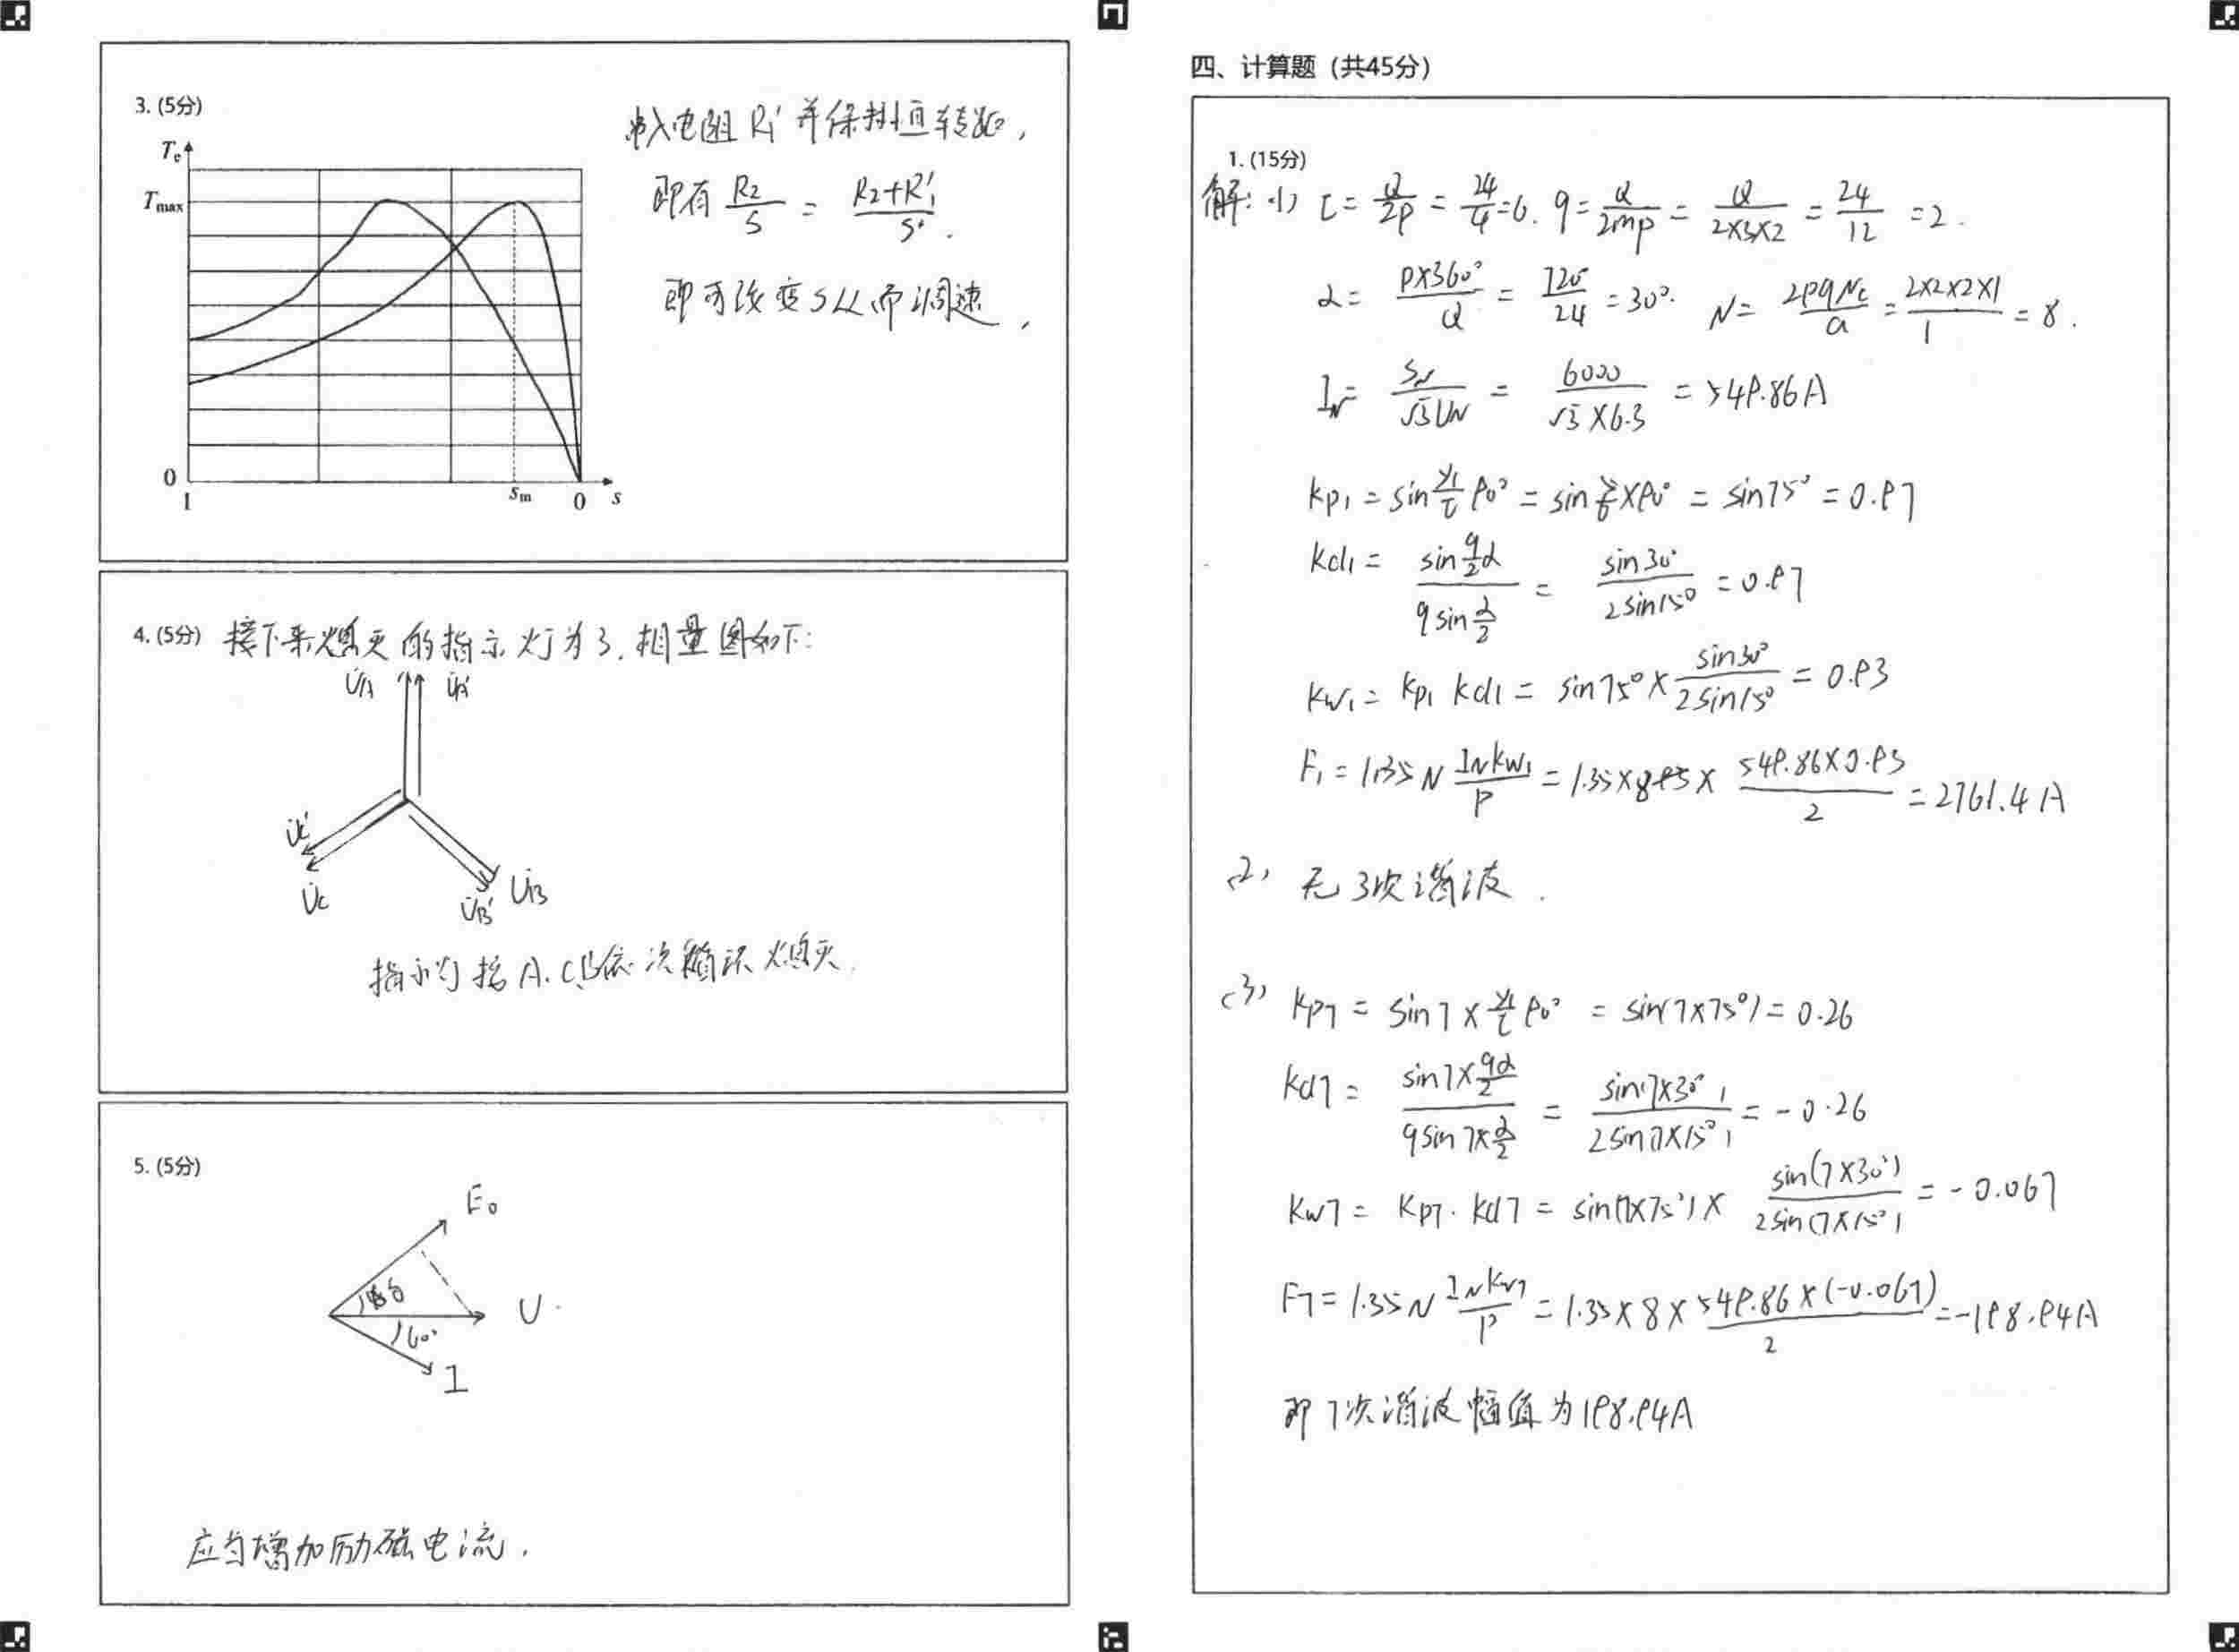 3. (5分)
Te
Tmax
0
1
sm
0
s
串入电阻 R1' 并保持恒转矩,
即有 R2/S = (R2+R1')/S'.
即可改变S从而调速,
4. (5分) 接下来熄灭的指示灯为3. 相量图如下:
U̇A U̇A'
U̇C'
U̇C
U̇B' U̇B
指示灯按A.C.B依次循环熄灭.
5. (5分)
E0
U
60°
I
应当增加励磁电流.
四、计算题（共45分）
1. (15分)
解: (1) τ = Q/2P = 24/4 = 6. q = Q/2mp = Q/(2×3×2) = 24/12 = 2.
α = P×360°/Q = 720/24 = 30°. N = 2pqNc/a = 2×2×2×1/1 = 8.
IN = SN/√3UN = 6000/(√3×6.3) = 549.86A
kp1 = sin y1/τ 90° = sin 5/6 ×90° = sin75° = 0.97
kd1 = sin q/2 α / q sin α/2 = sin30° / 2sin15° = 0.97
kw1 = kp1 kd1 = sin75° × sin30°/2sin15° = 0.93
F1 = 1.35 N IN kw1/P = 1.35×8× 549.86×0.93/2 = 2761.4 A
(2) 无3次谐波.
(3) kp7 = sin7× y1/τ 90° = sin(7×75°) = 0.26
kd7 = sin7×qα/2 / q sin7×α/2 = sin(7×30°) / 2sin(7×15°) = -0.26
kw7 = kp7 · kd7 = sin(7×75°) × sin(7×30°)/2sin(7×15°) = -0.067
F7 = 1.35 N IN kw7/P = 1.35×8× 549.86×(-0.067)/2 = -198.94A
即7次谐波幅值为198.94A